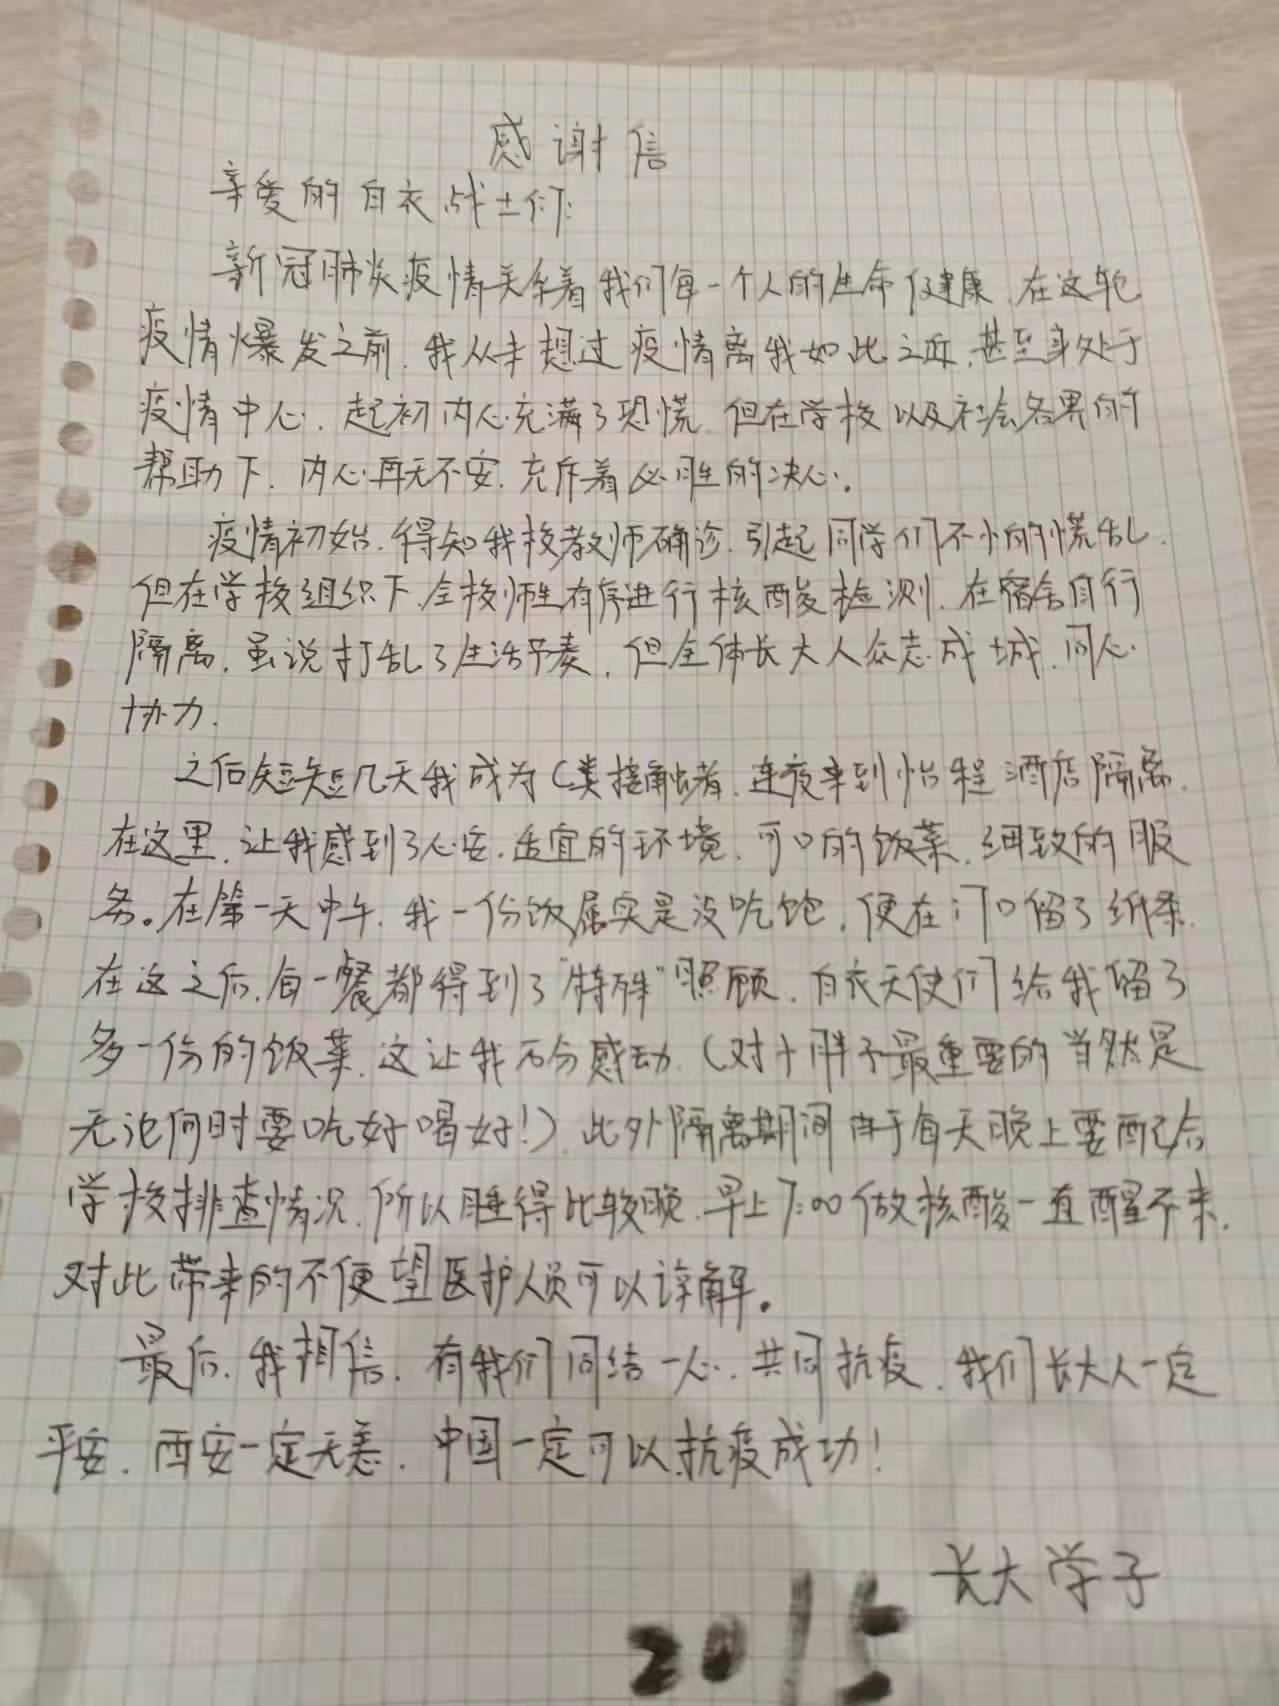 感谢信
亲爱的白衣战士们:
新冠肺炎疫情关系着我们每一个人的生命健康,在这轮
疫情爆发之前,我从未想过疫情离我如此之近,甚至身处于
疫情中心,起初内心充满了恐慌,但在学校以及社会各界的
帮助下,内心再无不安,充斥着必胜的决心。
疫情初始,得知我校教师确诊,引起同学们不小的慌乱,
但在学校组织下,全校师生有序进行核酸检测,在宿舍自行
隔离,虽说打乱了生活节奏,但全体长大人众志成城,同心
协力.
之后短短几天我成为C类接触者,连夜来到怡程酒店隔离,
在这里,让我感到了心安,适宜的环境,可口的饭菜,细致的服
务。在第一天中午,我一份饭属实是没吃饱,便在门口留了纸条,
在这之后,每一餐都得到了"特殊"照顾,白衣天使们给我留了
多一份的饭菜,这让我万分感动,(对小胖子最重要的当然是
无论何时要吃好喝好!),此外隔离期间由于每天晚上要配合
学校排查情况,所以睡得比较晚,早上7:00做核酸一直醒不来,
对此带来的不便望医护人员可以谅解。
最后,我相信,有我们同结一心,共同抗疫,我们长大人一定
平安,西安一定无恙,中国一定可以抗疫成功!
长大学子
2015